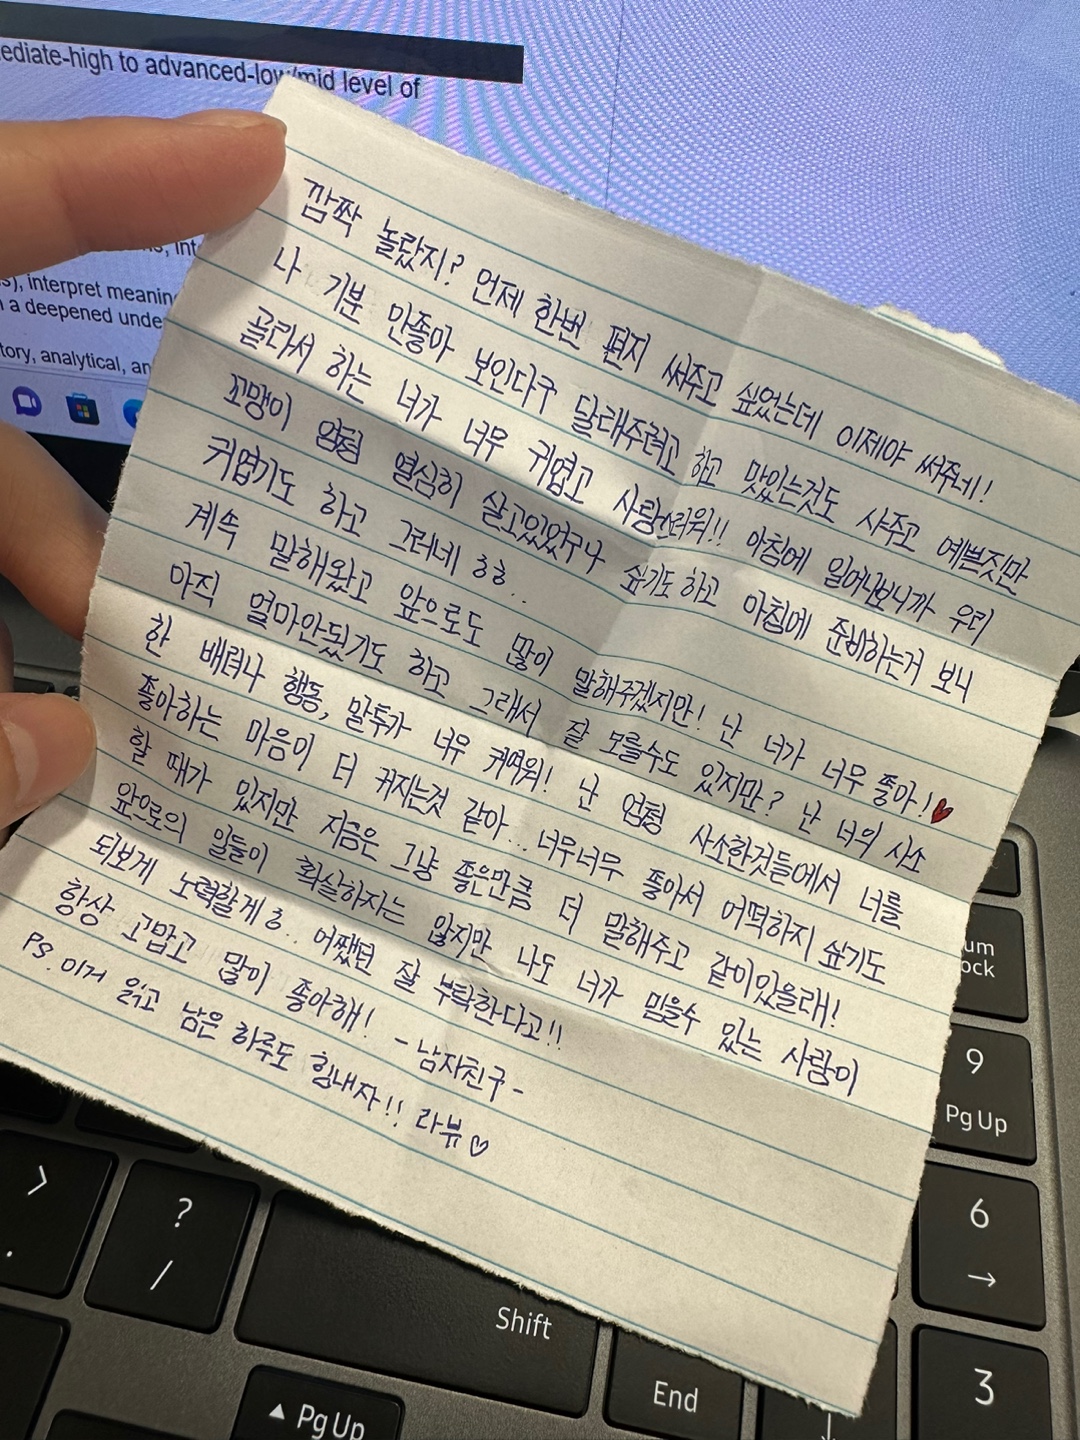 ediate-high to advanced-low/mid level of
s, int
s), interpret meanin
a deepened unde
tory, analytical, an
깜짝 놀랐지? 언제 한번 편지 써주고 싶었는데 이제야 써주네!
나 기분 안좋아 보인다구 달래주려고 하고 맛있는것도 사주고 예쁜짓만
골라서 하는 너가 너무 귀엽고 사랑스러워!! 아침에 일어나보니까 우리
꼬맹이 엄청 열심히 살고있었구나 싶기도 하고 아침에 준비하는거 보니
귀엽기도 하고 그러네 ㅎㅎ..
계속 말해왔고 앞으로도 많이 말해주겠지만! 난 너가 너무 좋아!♥
아직 얼마안됬기도 하고 그래서 잘 모를수도 있지만? 난 너의 사소
한 배려나 행동, 말투가 너무 귀여워! 난 엄청 사소한것들에서 너를
좋아하는 마음이 더 커지는것 같아... 너무너무 좋아서 어떡하지 싶기도
할 때가 있지만 지금은 그냥 좋은만큼 더 말해주고 같이있을래!
앞으로의 일들이 확실하지는 않지만 나도 너가 믿을수 있는 사람이
되보게 노력할게 ㅎ.. 어쨌던 잘 부탁한다고!!
항상 고맙고 많이 좋아해! - 남자친구 -
PS. 이거 읽고 남은 하루도 힘내자!! 라뷰♡
um
ock
9
Pg Up
6
→
>
.
?
/
Shift
End
3
↓
▲ Pg Up